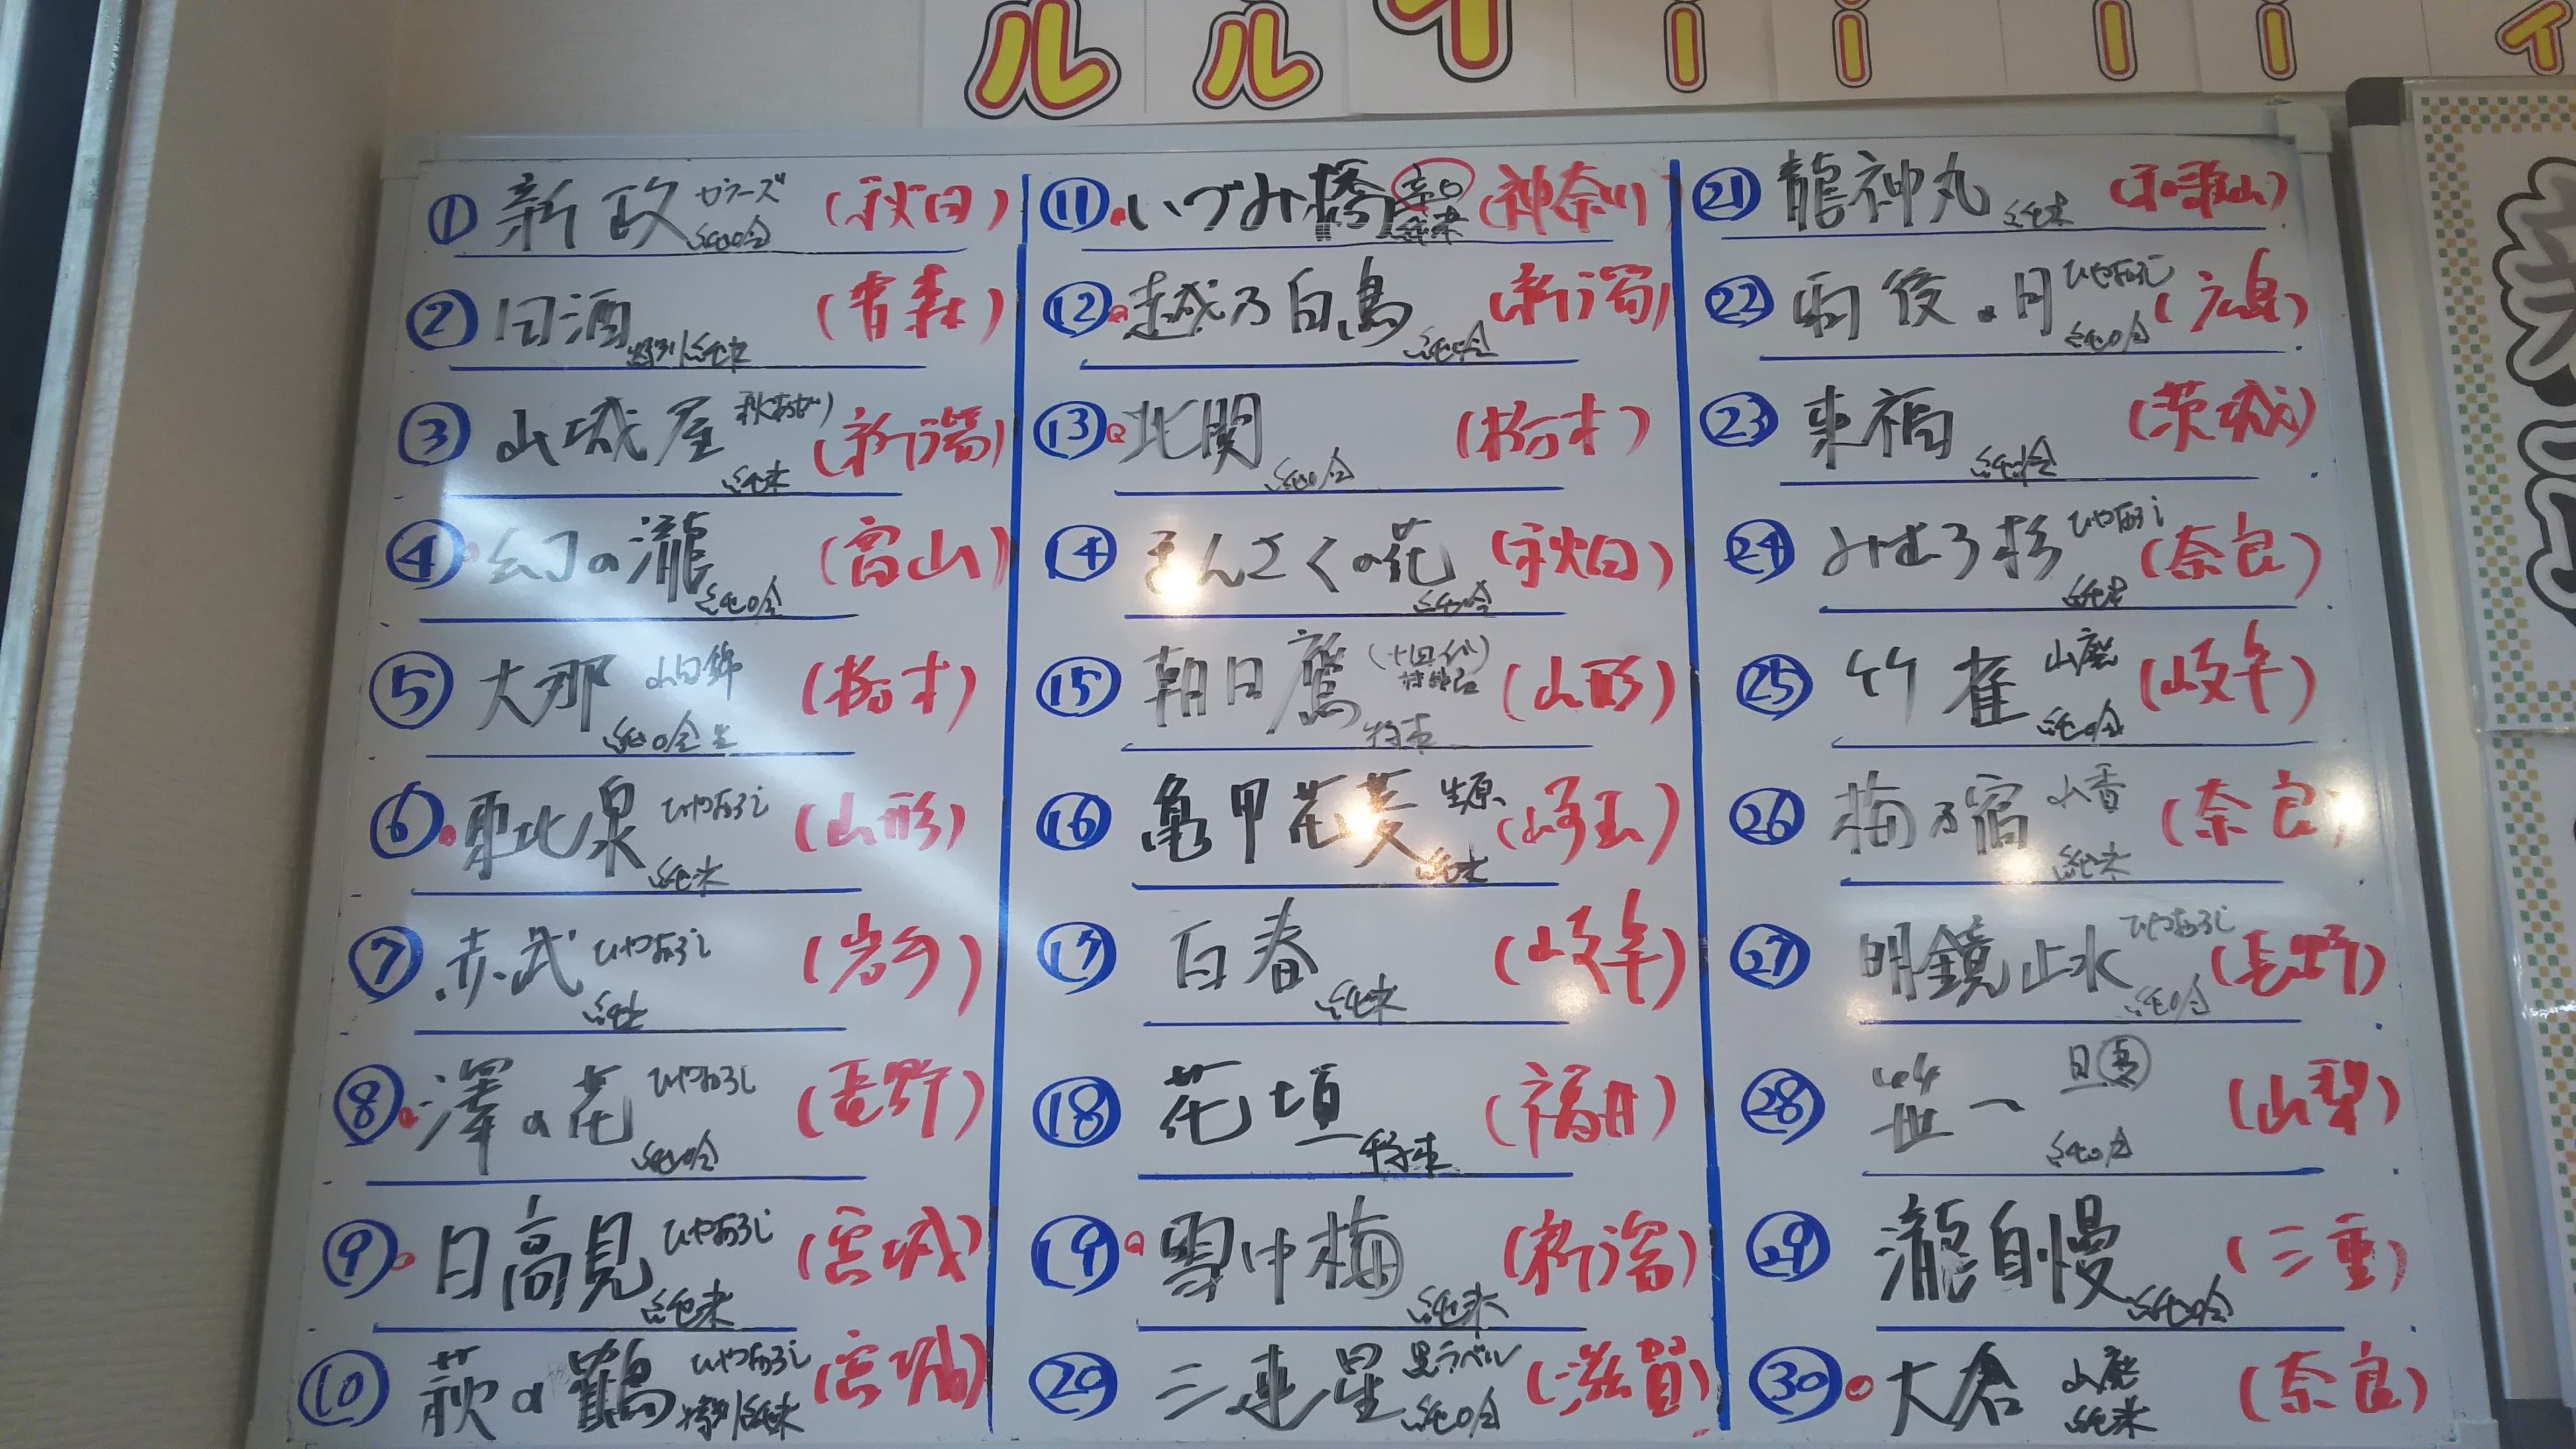 ルルイーーーーイ
① 新政 カラーズ 純吟 (秋田)
② 田酒 特別純米 (青森)
③ 山城屋 秋あがり 純米 (新潟)
④ 幻の瀧 純吟 (富山)
⑤ 大那 山田錦 純吟生 (栃木)
⑥ 東北泉 ひやおろし 純米 (山形)
⑦ 赤武 ひやおろし 純米 (岩手)
⑧ 澤の花 ひやおろし 純吟 (長野)
⑨ 日高見 ひやおろし 純米 (宮城)
⑩ 萩の鶴 ひやおろし 特別純米 (宮城)
⑪ いづみ橋 辛口 純米 (神奈川)
⑫ 越乃白鳥 純吟 (新潟)
⑬ 北関 純吟 (栃木)
⑭ まんさくの花 純吟 (秋田)
⑮ 朝日鷹 (十四代) (山形)
⑯ 亀甲花菱 生原 純米 (埼玉)
⑰ 百春 純米 (岐阜)
⑱ 花垣 特純 (福井)
⑲ 雪中梅 純米 (新潟)
⑳ 三連星 黒ラベル 純吟 (滋賀)
㉑ 龍神丸 純米 (和歌山)
㉒ 雨後の月 ひやおろし 純吟 (広島)
㉓ 来福 純吟 (茨城)
㉔ みむろ杉 ひやおろし 純米 (奈良)
㉕ 竹雀 山廃 純吟 (岐阜)
㉖ 梅乃宿 山香 純米 (奈良)
㉗ 明鏡止水 ひやおろし 純吟 (長野)
㉘ 笹一 旦 純吟 (山梨)
㉙ 瀧自慢 純吟 (三重)
㉚ 大倉 山廃 純米 (奈良)